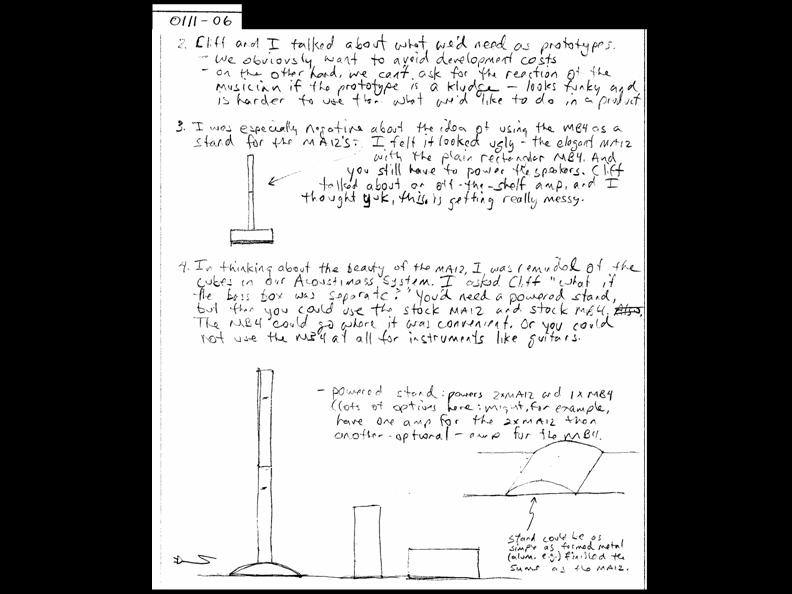 0111-06
2. Cliff and I talked about what we'd need as prototypes.
- we obviously want to avoid development costs
- on the other hand, we can't ask for the reaction of the
musician if the prototype is a kludge - looks funky and
is harder to use than what we'd like to do in a product
3. I was especially negative about the idea of using the MB4 as a
stand for the MA12's. I felt it looked ugly - the elegant MA12
with the plain rectangular MB4. And
you still have to power the speakers. Cliff
talked about an off-the-shelf amp, and I
thought yuk, this is getting really messy.
4. In thinking about the beauty of the MA12, I was reminded of the
cubes in our Acoustimass System. I asked Cliff "what if
the bass box was separate?" You'd need a powered stand,
but then you could use the stock MA12 and stock MB4. Also,
The MB4 could go where it was convenient. Or you could
not use the MB4 at all for instruments like guitars.
- powered stand: powers 2xMA12 and 1xMB4
(lots of options here: might, for example,
have one amp for the 2xMA12 then
another - optional - amp for the MB4.
stand could be as
simple as formed metal
(alum. e.g.) finished the
same as the MA12.